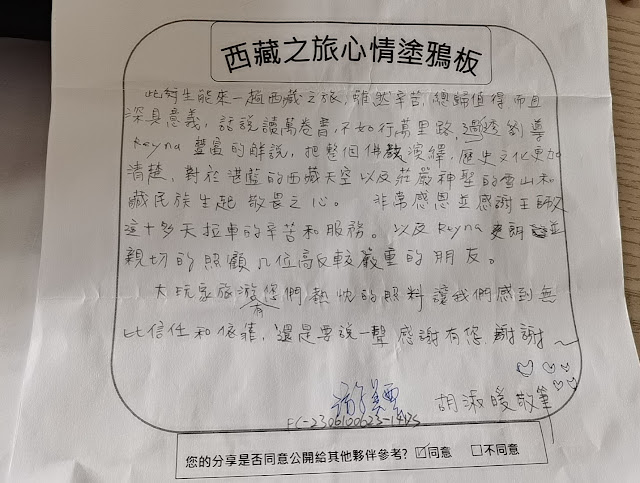 西藏之旅心情塗鴉板
此行生能來一趟西藏之旅,雖然辛苦,總歸值得而且
深具意義,話說讀萬卷書,不如行萬里路,透過 導
Reyna 豐富的解說,把整個佛教演繹,歷史文化更加
清楚,對於湛藍的西藏天空以及莊嚴神聖的雪山和
藏民族生起敬畏之心。 非常感恩並感謝王師父
這十多天拉車的辛苦和服務。以及Reyna 並
親切的照顧几位高反較嚴重的朋友。
大玩家旅游有您們熱忱的照料讓我們感到無
比信任和依靠,還是要說一聲感謝有您,謝謝~
胡淑暖敬筆
FC-230610062S-14
您的分享是否同意公開給其他夥伴參考? ☑同意 □不同意